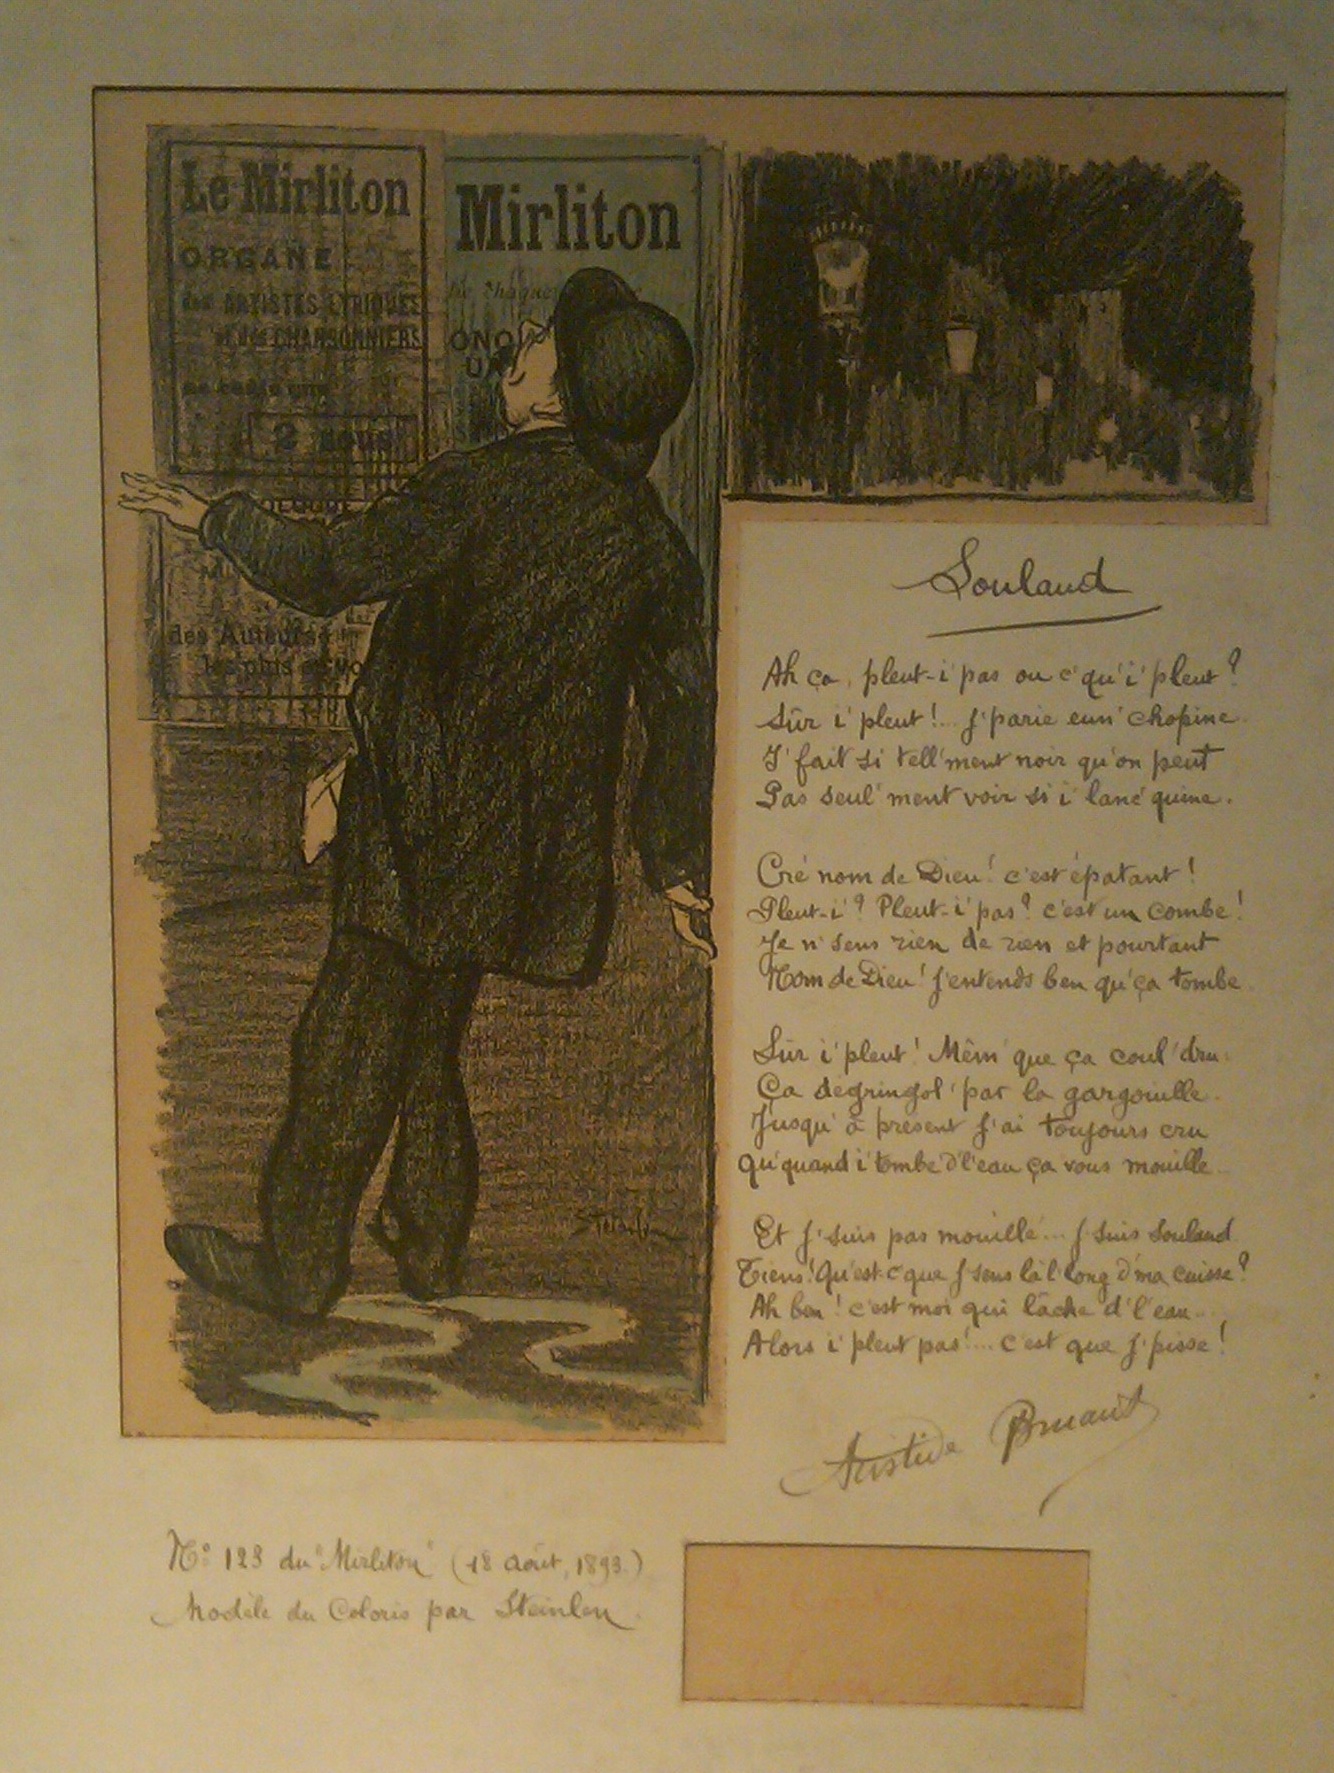 Le Mirliton
ORGANE
des ARTISTES LYRIQUES
et des CHANSONNIERS
2 sous
des Auteurs
les plus
Mirliton
chaque
ONO
UA
Steinlen
Soulaud
Ah ça, pleut-i' pas ou c'qu'i' pleut ?
Sûr i' pleut !... J'parie eun' chopine
I' fait si tell'ment noir qu'on peut
Pas seul'ment voir si i' lanc'quine.
Cré nom de Dieu ! c'est épatant !
Pleut-i' ? Pleut-i' pas ? c'est un combe !
Je n'sens rien de rien et pourtant
Nom de Dieu ! j'entends ben qu'ça tombe.
Sûr i' pleut ! Mêm' que ça coul' dru.
Ça dégringol' par la gargouille.
Jusqu'à présent j'ai toujours cru
Qu'quand i' tombe d'l'eau ça vous mouille...
Et j'suis pas mouillé... j'suis soulaud
Tiens ! Qu'est-c'que j'sens là l'long d'ma cuisse ?
Ah ben ! c'est moi qui lâche d'l'eau...
Alors i' pleut pas !... C'est que j'pisse !
Aristide Bruant
No. 123 du "Mirliton" (18 Août, 1893)
Modèle du Coloris par Steinlen.